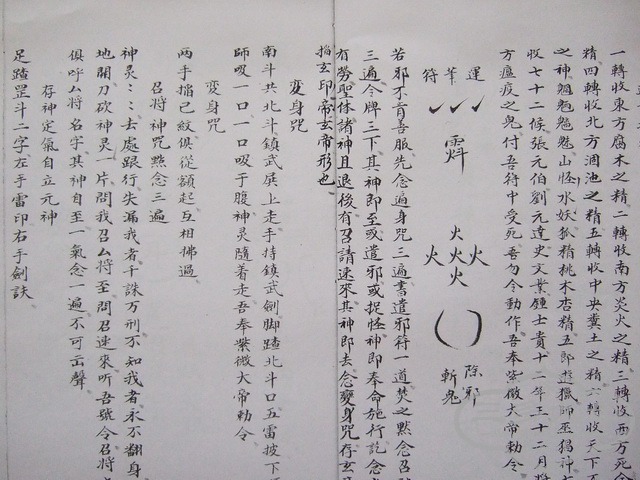 一轉收東方腐木之精二轉收南方炎火之精三轉收西方死金
精四轉收北方涸池之精五轉收中央糞土之精六轉收天下
之神魍魎魑魅山怪水妖狐精桃木杏精五郎遊獵師巫猖神
收七十二候張元伯劉元達史文業鍾士貴十二年王十二月將
方瘟疫之鬼付吾符中受死吾勿令動作吾奉紫微大帝勅令
運筆符
火火火火火
除邪
斬鬼
若邪不肯善服先念遍身咒三遍書遣邪符一道焚之黙念召
三遍令牌三下其神即至或遣邪或捉怪神即奉命施行訖念
有勞聖体諸神且退後有召請速來其神即去念變身咒存玄
掐玄印帝玄帝形也
變身咒
南斗共北斗鎮武展上走手持鎮武劍脚踏北斗口五雷披下
師吸一口一口吸于腹神灵隨着走吾奉紫微大帝勅令
變身咒
两手掐己紋俱從額起互相拂過
召將神咒黙念三遍
神灵々々去處跟行失漏我者千誅万刑不知我者永不翻身
地開刀砍神灵一片問我召厶將至問召速來听吾號令召將
俱呼厶將名字其神自至一氣念一遍不可出聲
存神定氣自立元神
足踏罡斗二字左手雷印右手劍訣